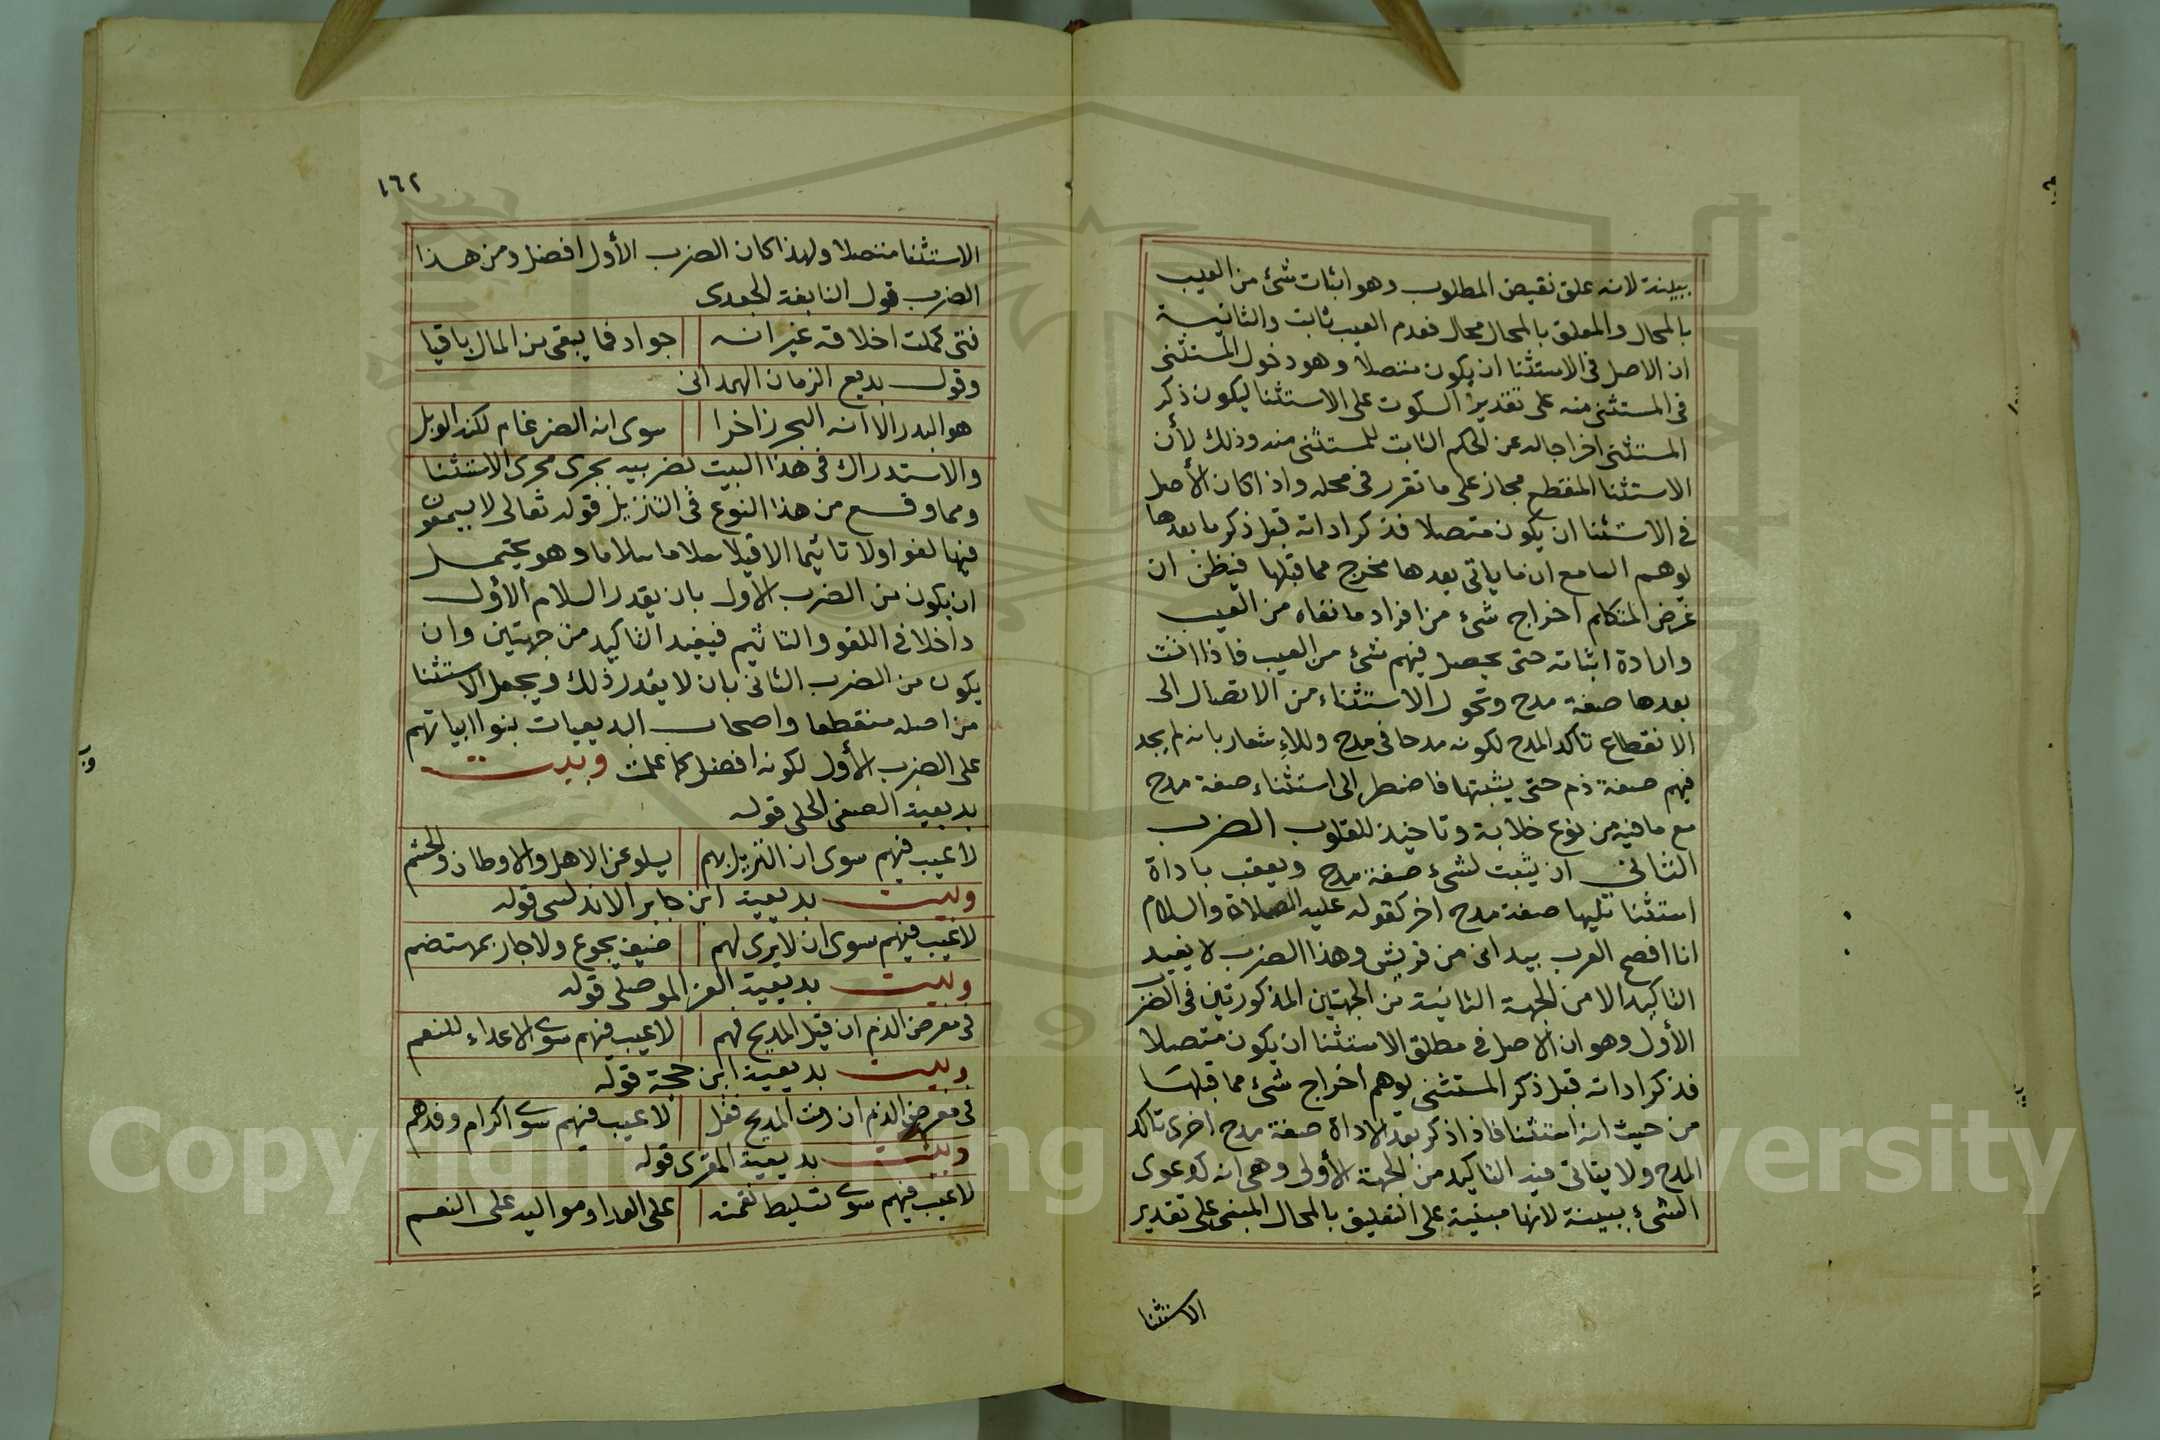 ببينة لانه علق نقيض المطلوب وهو اثبات شئ من العيب
بالمحال والمعلق بالمحال محال فعدم العيب ثابت والثانية
ان الاصل فى الاستثنا ان يكون متصلا وهو دخول المستثنى
فى المستثنى منه على تقدير السكوت على الاستثنا ليكون ذكر
المستثنى اخراجا له عن الحكم الثابت للمستثنى منه وذلك لأن
الاستثنا المنقطع مجاز على ما تقرر فى محله واذا كان الأصل
فى الاستثنا ان يكون متصلا فذكر اداته قبل ذكر ما بعدها
يوهم السامع ان ما ياتى بعدها مخرج مما قبلها فيظن ان
غرض المتكلم اخراج شئ من افراد ما نفاه من العيب
وارادة اثباته حتى يحصل فيهم شئ من العيب فاذا اتت
بعدها صفة مدح وتحول الاستثناء من الاتصال الى
الانقطاع تاكد المدح لكونه مدحا فى مدح وللاشعار بانه لم يجد
فيهم صفة ذم حتى يثبتها فاضطر الى استثناء صفة مدح
مع ما فيه من نوع خلابة وتاخيذ للقلوب الضرب
الثانى ان يثبت لشئ صفة مدح ويعقب باداة
استثنا تليها صفة مدح اخر كقوله عليه الصلاة والسلام
انا افصح العرب بيد انى من قريش وهذا الضرب لا يفيد
التاكيد الا من الجهة الثانية من الجهتين المذكورتين فى الضرب
الأول وهو ان الاصل فى مطلق الاستثنا ان يكون متصلا
فذكر اداته قبل ذكر المستثنى يوهم اخراج شئ مما قبلها
من حيث انه استثنا فاذا ذكر بعد الاداة صفة مدح اخرى تاكد
المدح ولا يتاتى فيه التاكيد من الجهة الأولى وهى انه كدعوى
الشئ ببينة لانها مبنية على التعليق بالمحال المبنى على تقدير
الاستثنا
١٦٢
الاستثنا متصلا ولهذا كان الضرب الأول افضل ومن هذا
الضرب قول النابغة الجعدى
فتى كملت اخلاقه غير انه جواد فما يبقى من المال باقيا
وقول بديع الزمان الهمدانى
هو البدر الا انه البحر زاخرا سوى انه الضرغام لكنه الوبل
والاستدراك فى هذا البيت بضربيه يجرى مجرى الاستثنا
ومما وقع من هذا النوع فى التنزيل قوله تعالى لا يسمعون
فيها لغوا ولا تاثيما الا قيلا سلاما سلاما وهو يحتمل
ان يكون من الضرب الاول بان يقدر السلام الأول
داخلا فى اللغو والتاثيم فيفيد التاكيد من جهتين وان
يكون من الضرب الثانى بان لا يقدر ذلك ويجعل الاستثنا
من اصله منقطعا واصحاب البديعيات بنوا ابياتهم
على الضرب الأول لكونه افضل كما علمت وبيت
بديعية الصفى الحلى قوله
لا عيب فيهم سوى ان النزيل بهم يسلو عن الاهل والاوطان والحشم
وبيت بديعية ابن جابر الاندلسى قوله
لا عيب فيهم سوى ان لا يرى لهم ضيف يجوع ولا جار بمهتضم
وبيت بديعية العز الموصلى قوله
فى معرض الذم ان قيل المديح فهم لا عيب فيهم سوى الاعداء للنعم
وبيت بديعية ابن حجة قوله
فى معرض الذم ان رمت المديح فقل لا عيب فيهم سوى اكرام وفدهم
وبيت بديعية المقرى قوله
لا عيب فيهم سوى تسليط نقمته على العدا ومواليه على النعم
Copyright © King University